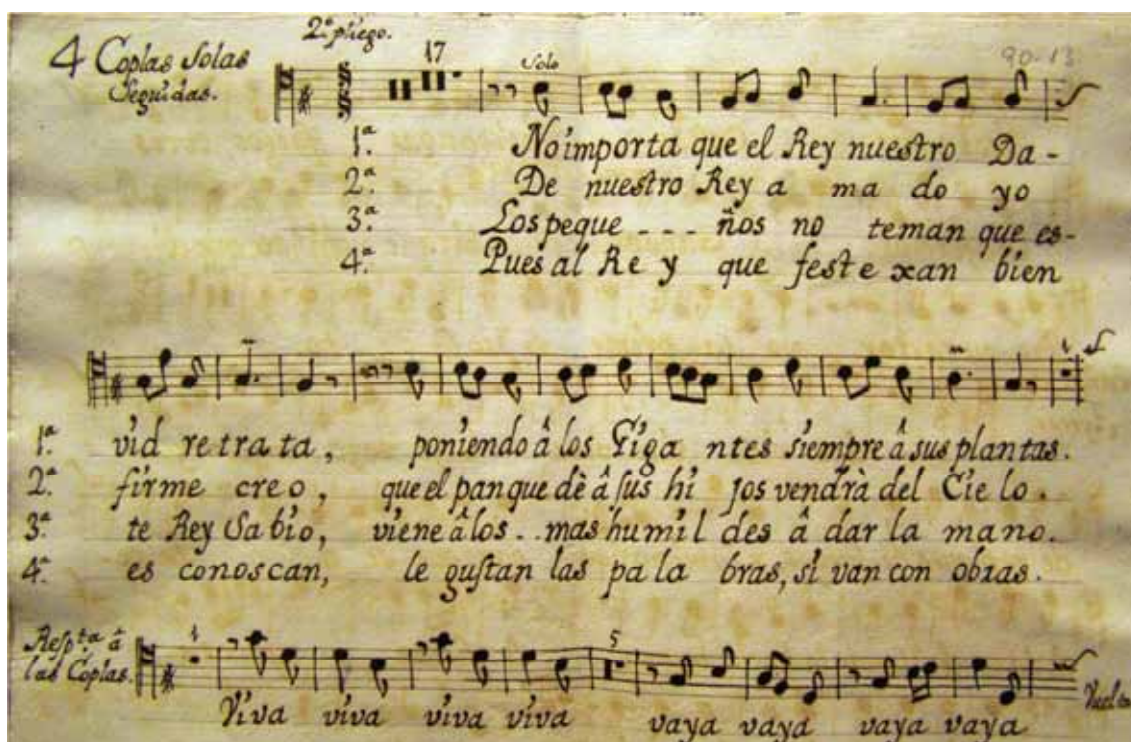 2.º pliego.
4 Coplas Solas
Seguidas.
17
Solo
90-13
1.ª No importa que el Rey nuestro Da-
2.ª De nuestro Rey a ma do yo
3.ª Los peque --- ños no teman que es-
4.ª Pues al Re y que feste xan bien
1
1.ª vid retrata, poniendo â los Giga ntes siempre â sus plantas.
2.ª firme creo, que el pan que dè â sus hi jos vendrà del Cie lo.
3.ª te Rey Sabio, viene â los .. mas humil des â dar la mano.
4.ª es conoscan, le gustan las pa la bras, si van con obras.
Resp.ta â
las Coplas.
1
5
Viva viva viva viva vaya vaya vaya vaya